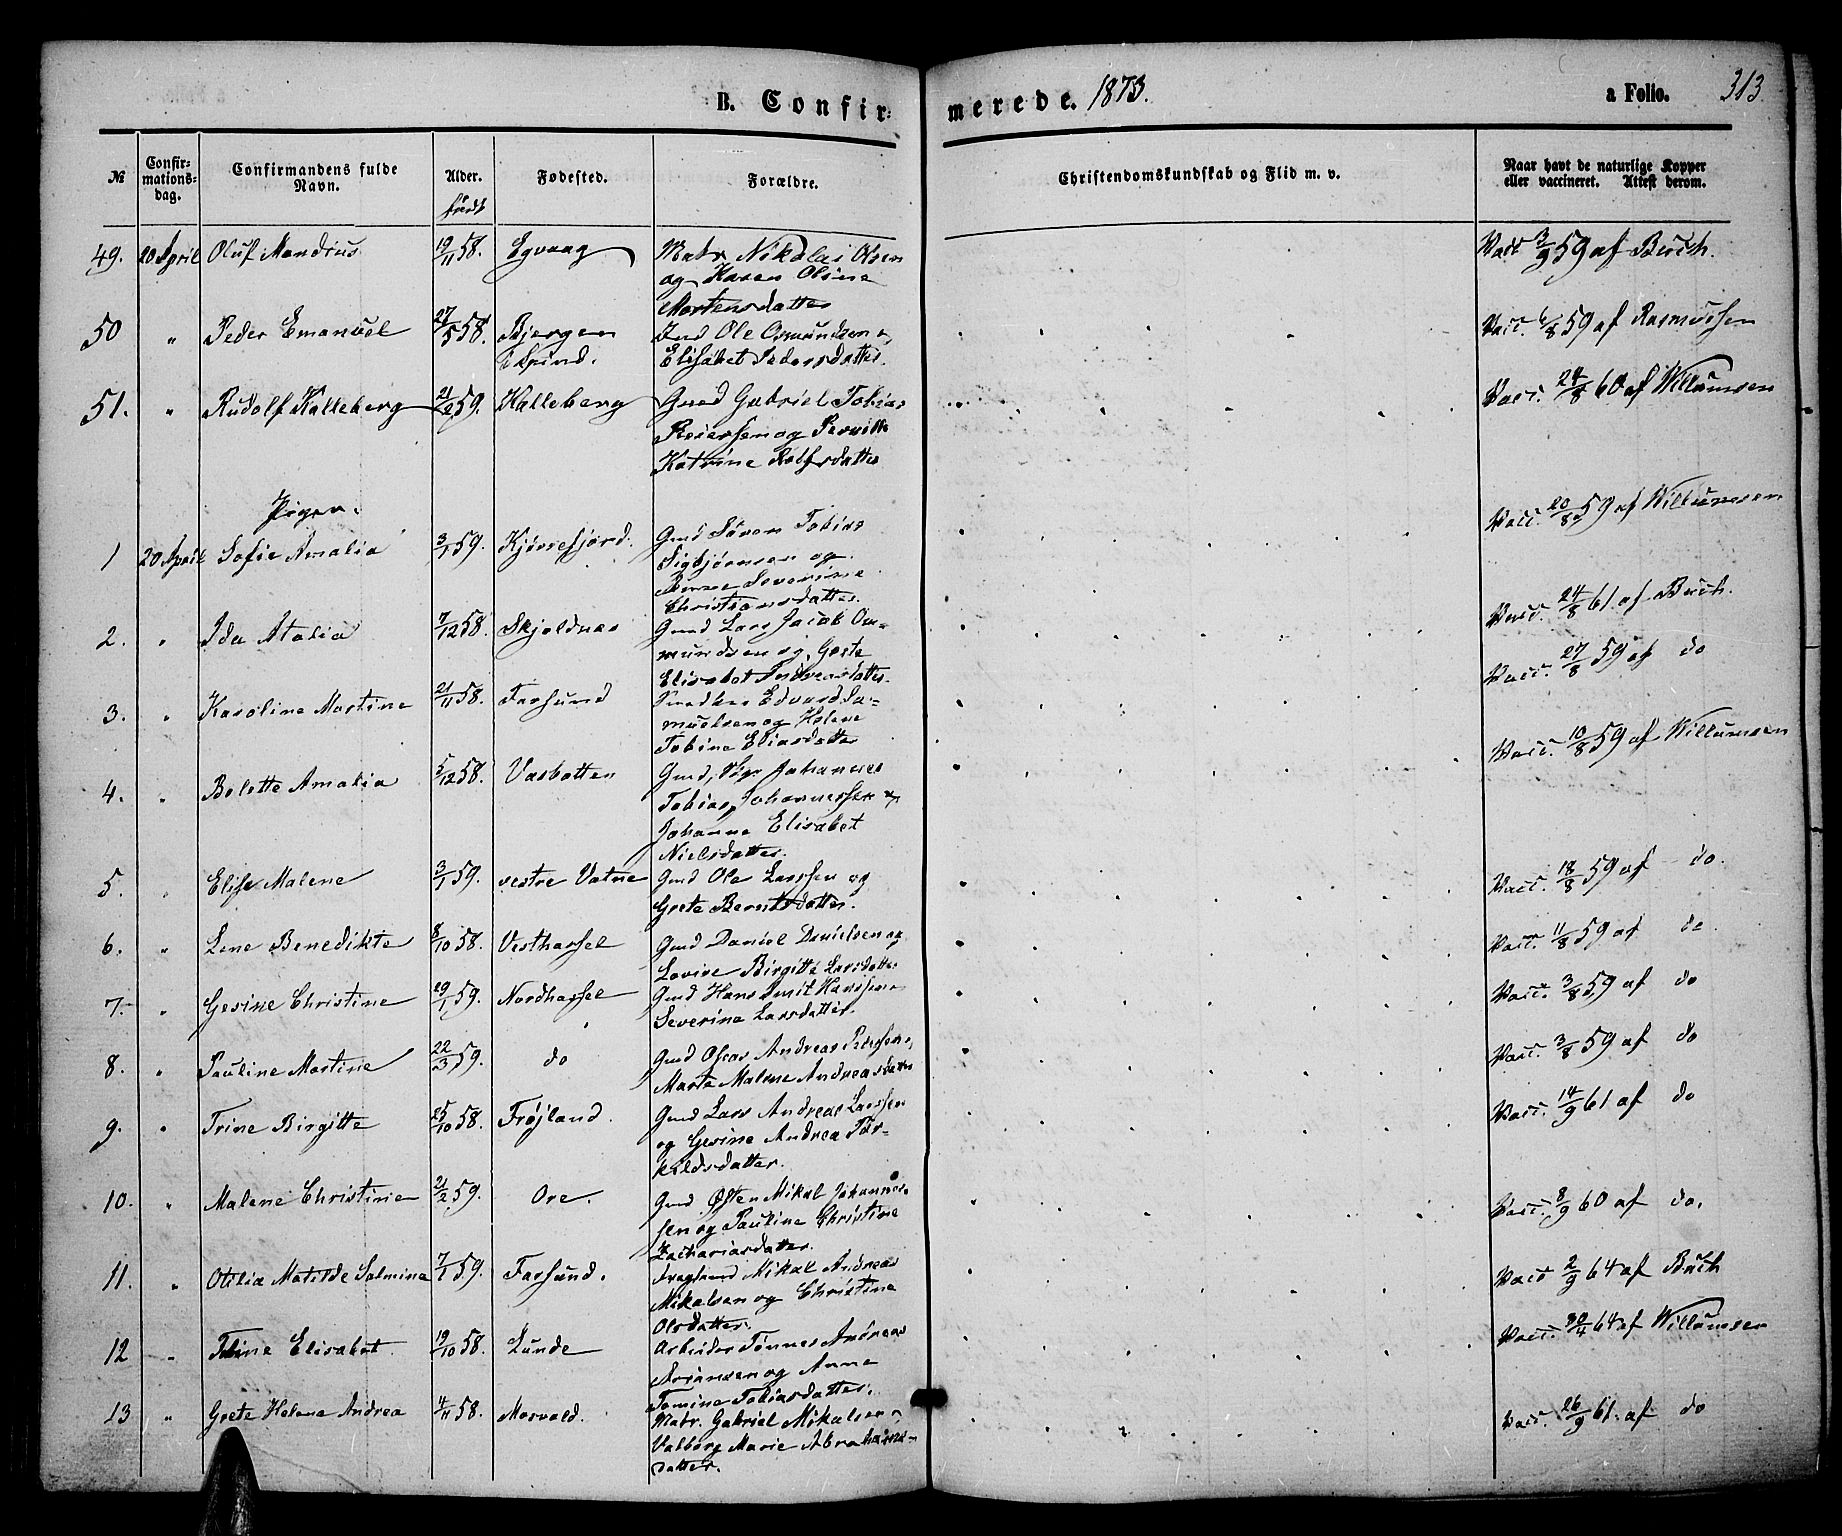 B. Confir-
merede. 1873.
a Folio. 313
№
Confir-
mations-
dag.
Confirmandens fulde
Navn.
Alder.
født
Fødested.
Forældre.
Christendomskundskab og Flid m. v.
Naar havt de naturlige Kopper
eller vaccineret. Attest derom.
49. 20 April Oluf Mandius 19/11 58. Egvaag Matr Nikolai Olsen
og Karen Olsine
Mortensdatter
Vacc 3/9 59 af Buch.
50 " Peder Emanuel 27/5 58. Bjergen
i Spind.
Ind Ole Osmundsen
Elisabet Pedersdatter
Vacc. 6/8 59 af Rasmussen
51. " Rudolf Kalleberg 21/2 59. Kalleberg Gmd Gabriel Tobias
Reiersen og Pernille
Katrine Rolfsdatter
Vacc. 24/8 60 af Willumsen
Piger.
1 20 April Sofie Amalia 3/1 59. Kjørrefjord. Gmd Søren Tobias
Sigbjørnsen og
Anne Severine
Christiansdatter.
Vacc. 20/8 59 af Willumsen
2. " Ida Atalia 7/12 58. Skjoldnes Gmd Lars Jacob Om-
mundsen og Grete
Elisabet Andreasdatter
Vacc. 24/8 61 af Buch.
3. " Karoline Martine 21/11 58. Farsund Snedker Edvard Sa-
muelsen og Helene
Tobine Eliasdatter
Vacc. 27/8 59 af do
4. " Bolette Amalia 5/12 58. Vasbotten Gmd, Johannes
Tobias Johannessen
Johanne Elisabet
Nielsdatter.
Vacc. 10/8 59 af Willumsen
5. " Elise Malene 3/1 59. vestre Vatne Gmd Ole Larssen og
Grete Berntsdatter.
Vacc. 18/8 59 af do.
6. " Lene Benedikte 8/10 58. Vesthassel Gmd Daniel Danielsen og
Lovise Birgitte Larsdatter
Vacc. 11/8 59 af do
7. " Gesine Christine 29/1 59. Nordhassel Gmd Hans Smit Hanssen
Severine Larsdatter.
Vacc. 3/8 59 af do
8. " Pauline Martine 22/3 59. do Gmd Andreas Pedersen
Marte Malene Andreasdatter
Vacc. 3/8 59 af do
9. " Trine Birgitte 25/10 58. Frøjland. Gmd Lars Andreas Larssen
og Gesine Andrea Tor-
kildsdatter.
Vacc. 14/9 61 af do
10. " Malene Christine 21/2 59. Ore. Gmd Østen Mikal Johannes-
sen og Pauline Christine
Zachariasdatter.
Vacc. 8/9 60 af do.
11. " Otilia Matilde Salmine 7/1 59. Farsund. Mikal Andreas
Mikalsen og Christine
Olsdatter.
Vacc 2/9 64 af Buch
12 " Tobine Elisabet. 19/10 58. Lunde Arbeider Tønnes Andreas
Ariansen og Anne
Tomine Tobiasdatter.
Vacc. 30/4 64 af Willumsen
13 " Grete Helene Andrea 4/11 58. Mosvald. Matr. Gabriel Mikalsen
Valborg Marie Abrahams-
datter.
Vacc. 26/9 61. af do